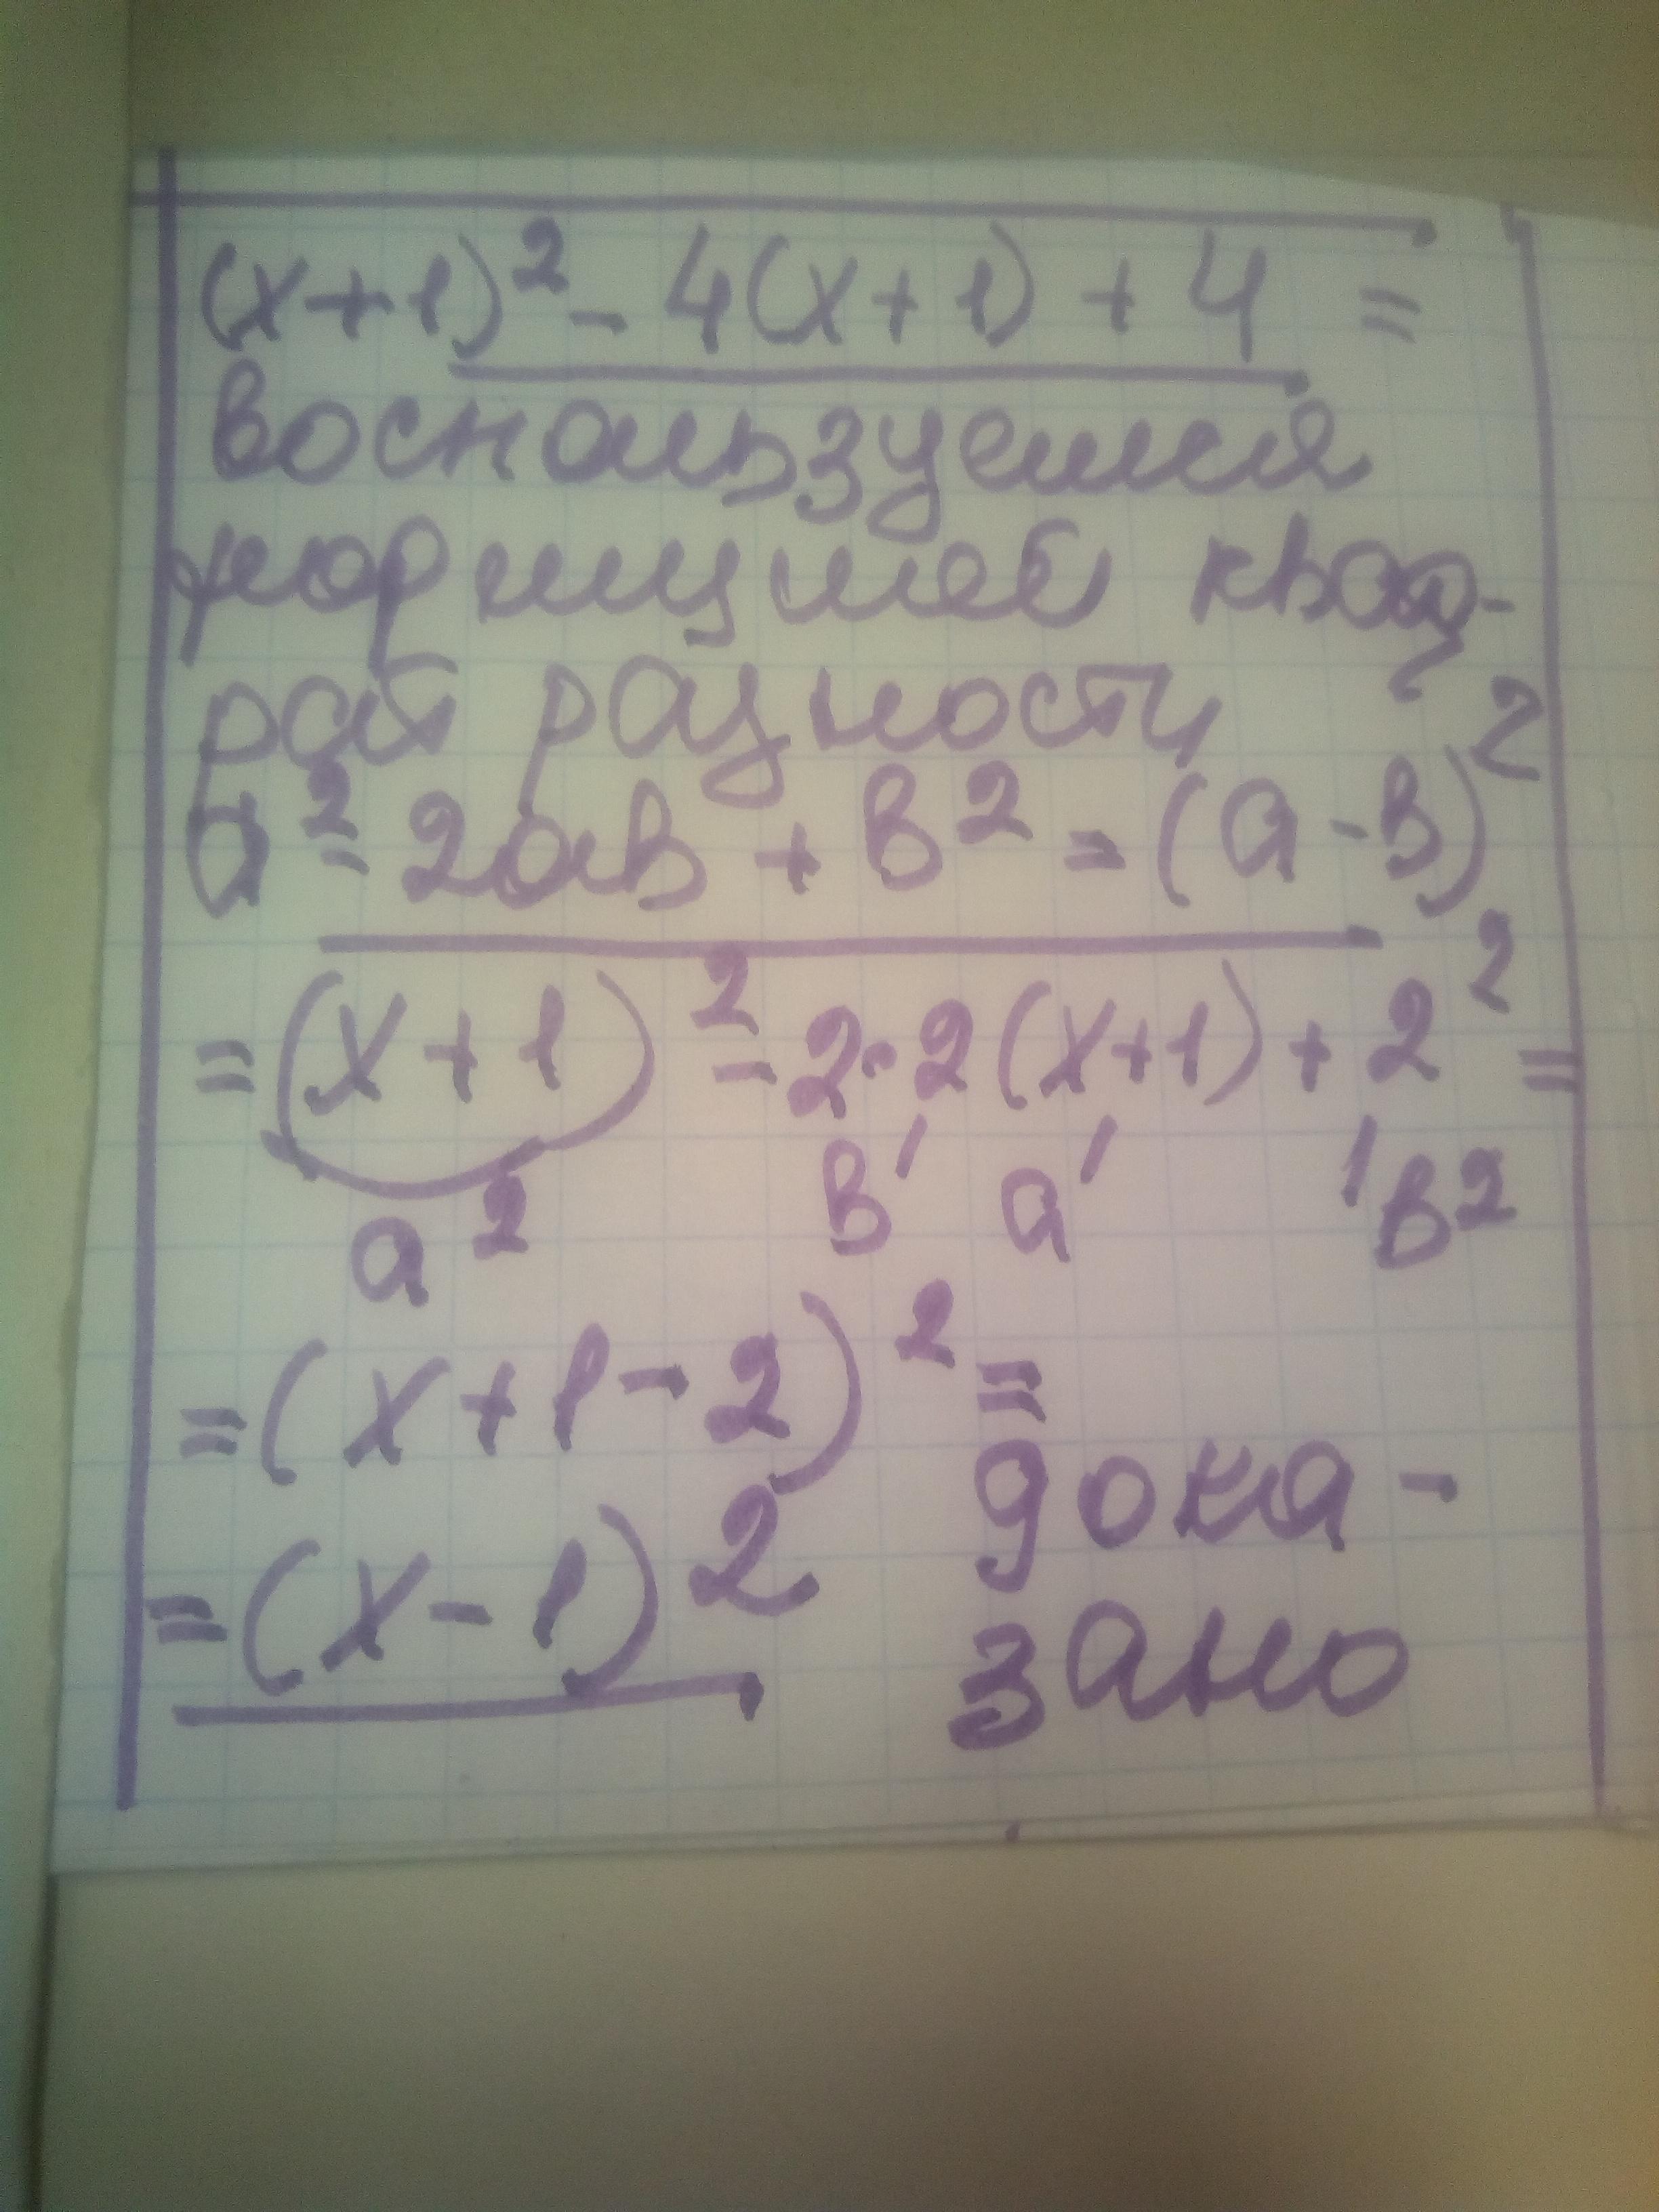 (x+1)² - 4(x+1) + 4 =
воспользуемся
формулой квад-
рат разности
a² - 2ab + b² = (a - b)²
= (x + 1)² - 2·2(x+1) + 2² =
a² b a b²
= (x + 1 - 2)² =
= (x - 1)² дока-
зано